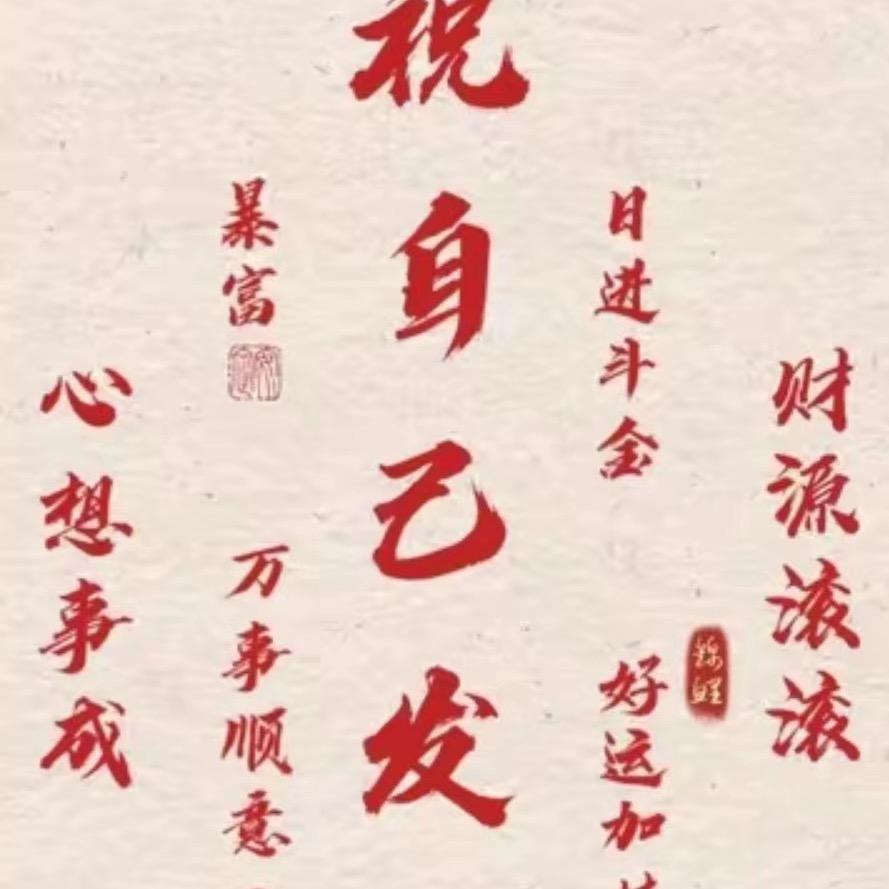 祝自己发
日进斗金
财源滚滚
好运加
锦鲤
暴富
万事顺意
心想事成